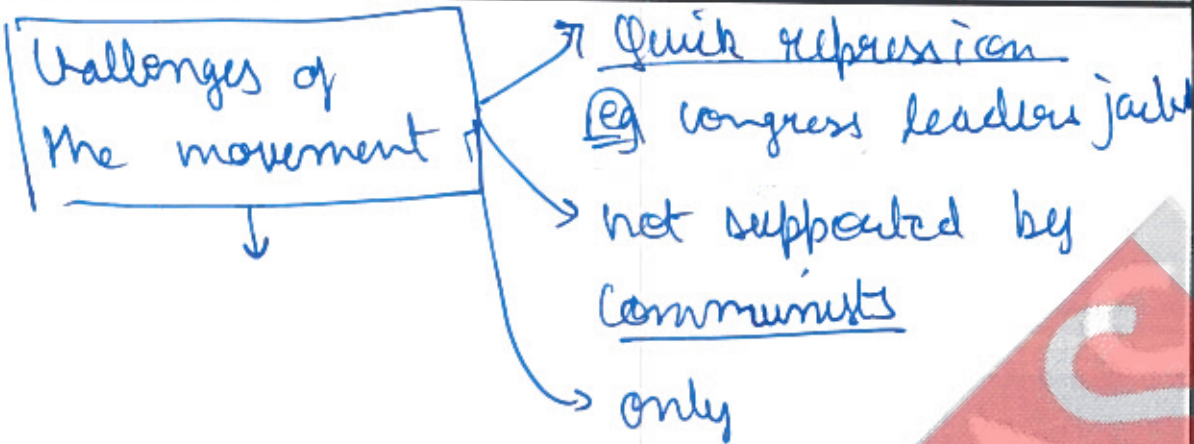 Challenges of
the movement
Quick repression
eg congress leaders jailed
not supported by
Communists
only